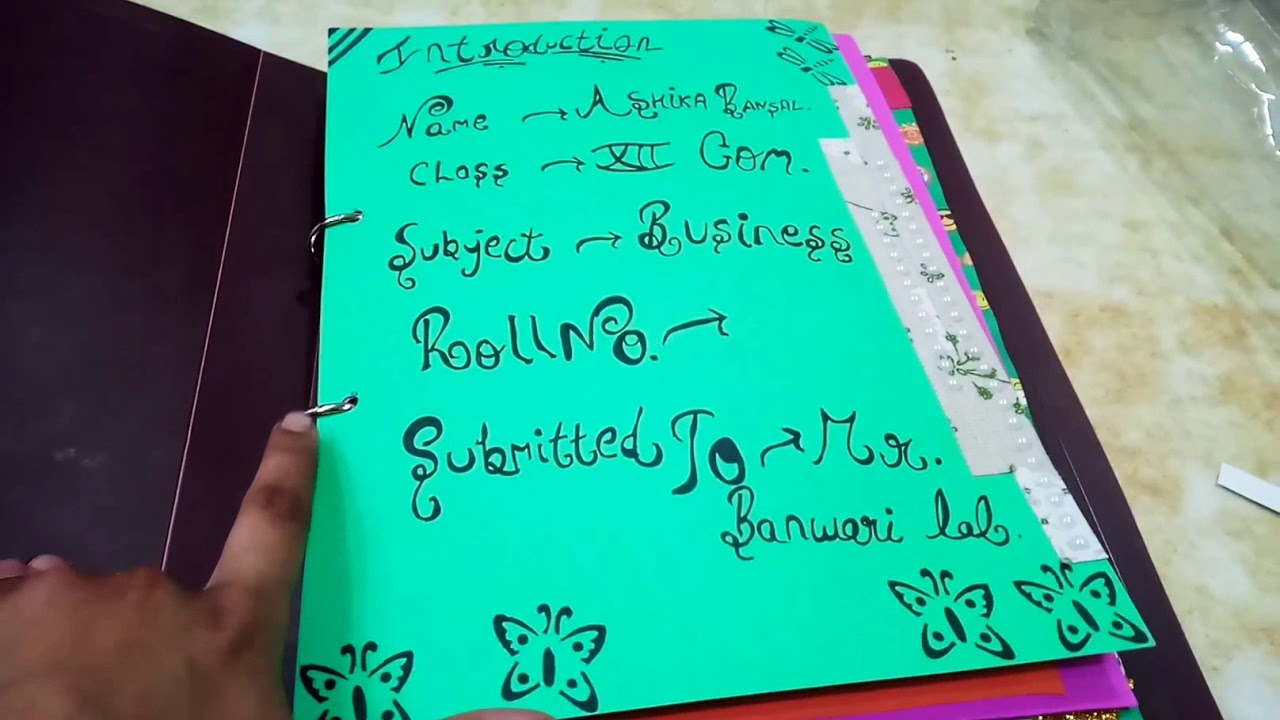 Introduction
Name → Ashika Bansal.
Class → XII Com.
Subject → Business
Roll No. →
Submitted To → Mr.
Banwari lal.